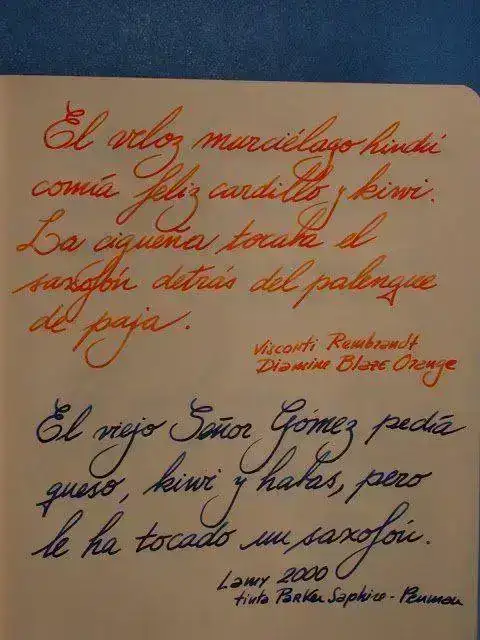 El veloz murciélago hindú
comía feliz cardillo y kiwi.
La cigueña tocaba el
saxofón detrás del palenque
de paja.
Visconti Rembrandt
Diamine Blaze Orange
El viejo Señor Gómez pedía
queso, kiwi y habas, pero
le ha tocado un saxofón.
Lamy 2000
tinta Parker Saphire - Penman